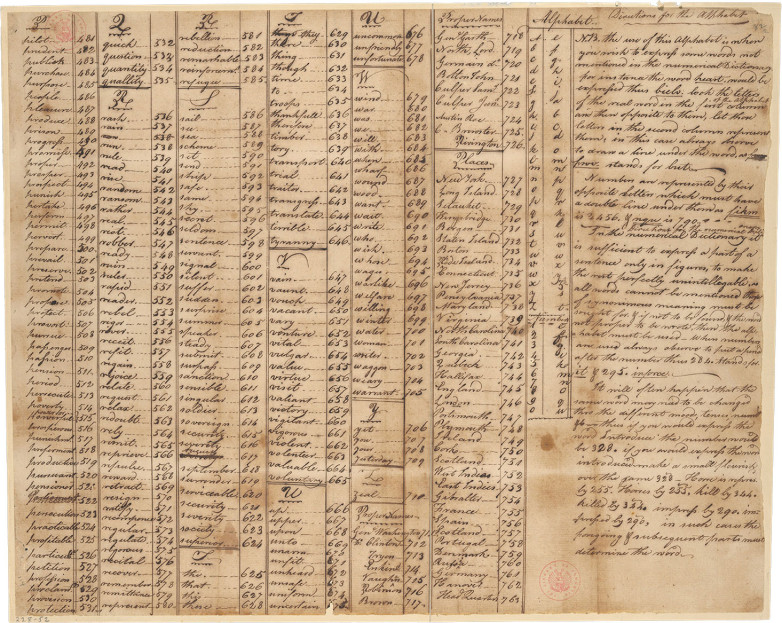 P
pilot 481
prudent 482
publish 483
purchase 484
purpose 485
people 486
pleasure 487
produce 488
prison 489
progress 490
promise 491
proper 492
prosper 493
prospect 494
punish 495
partake 496
perform 497
permit 498
pervert 499
prepare 500
prevail 501
preserve 502
pretend 503
promote 504
propose 505
protect 506
provost 507
pursue 508
passenger 509
passion 510
pension 511
period 512
persecute 513
poverty 514
powerful 515
prosperous 516
punishment 517
preferment 518
production 519
pursuant 520
pensioner 521
Parliament 522
persecution 523
practicable 524
profitable 525
particular 526
petition 527
profession 528
proclaim 529
provision 530
protection 531
Q
quick 532
question 533
quantity 534
quallity 535
R
rash 536
rain 537
run 538
rule 539
read 540
rise 541
random 542
ransom 543
rather 544
real 545
riot 546
robber 547
ready 548
ruin 549
rule 550
rapid 551
reader 552
rebel 553
rigor 554
river 555
receit 556
refit 557
regain 558
rejoice 559
relate 560
request 561
relax 562
redoubt 563
rely 564
remit 565
reprieve 566
repulse 567
reward 568
retract 569
resign 570
ratify 571
recompence 572
regular 573
regulate 574
rigorous 575
recital 576
recover 577
remember 578
remittance 579
represent 580
rebellion 581
reduction 582
remarkable 583
reinforcemt. 584
refugee 585
S
sail 586
see 587
sea 588
scheme 589
set 590
send 591
ship 592
safe 593
same 594
sky 595
secret 596
seldom 597
sentence 598
servant 599
signal 600
silent 601
suffer 602
sudden 603
surprise 604
summer 605
speaker 606
steady 607
submit 608
surpass 609
sanction 610
sensible 611
singular 612
soldier 613
sovereign 614
security 615
616
617
september 618
surrender 619
serviceable 620
security 621
severity 622
society 623
superior 624
T
the 625
that 626
this 627
these 628
T
they 629
there 630
thing 631
though 632
time 633
to 634
troops 635
thankfull 636
therefore 637
timber 638
tory 639
transport 640
trial 641
traitor 642
transgress 643
translate 644
terrible 645
tyranny 646
V
vain 647
vaunt 648
vouch 649
vacant 650
vary 651
venture 652
vital 653
vulgar 654
value 655
virtue 656
visit 657
valiant 658
victory 659
vigilant 660
vigorous 661
violent 662
volenteer 663
valuable 664
voluntary 665
U
up 666
upper 667
upon 668
unto 669
unarm 670
unfit 671
unheard 672
unsafe 673
uniform 674
uncertain 675
U
uncommon 676
unfriendly 677
unfortunate 678
W
wind 679
war 680
was 681
we 682
will 683
with 684
when 685
wharf 686
wound 687
wood 688
want 689
wait 690
write 691
who 692
wish 693
whose 694
wages 695
warlike 696
welfare 697
willing 698
winter 699
water 700
woman 701
writer 702
waggon 703
weary 704
warrant 705
Y
year 706
you 707
your 708
yesterday 709
Z
zeal 710
Proper Names
Gen. Washington 711
Do. Clinton 712
Tryon 713
Erskine 714
Vaughn 715
Robinson 716
Brown 717
Proper Names
Gen. Garth 718
North Lord 719
Germain do. 720
Bolton John 721
Culper Saml. 722
Culper Junr. 723
Austin Roe 724
C. Brewster 725
Rivington 726
Places
New York 727
Long Island 728
Setauket 729
Kingsbridge 730
Bergen 731
Staten Island 732
Boston 733
Rhode Island 734
Connecticut 735
New Jersey 736
Pensylvania 737
Maryland 738
Virginia 739
North Carolina 740
South Carolina 741
Georgia 742
Quebeck 743
Hallifax 744
England 745
London 746
Portsmouth 747
Plymouth 748
Ireland 749
Cork 750
Scotland 751
West Indies 752
East Indies 753
Gibralter 754
France 755
Spain 756
Scotland 757
Portugal 758
Denmark 759
Russia 760
Germany 761
Hanover 762
Head Quarters 763
Alphabet
a e
b f
c g
d h
e i
f j
g a
h b
i c
j d
k o
l m
m n
n p
o q
p r
q k
r l
s u
t v
u w
v x
w y
x z
y s
z t
Numbers
1 e
2 f
3 g
4 i
5 k
6 m
7 n
8 o
9 q
0 u
Directions for the Alphabet
N.B. the use of this Alphabet is when
you wish to express some words not
mentioned in the numerical Dictionary
for instance the word heart, would be
expressed thus bielv. look the letters
of the real word in the first column
and then opposite to them, let those
letters in the second column represent
them; in this case always observe
to draw a line under the word, as
fwv. stands for but
Numbers are represented by their
opposite letters which must have
a double line under them as fikm
is 2456. & nqu is 790.
Directions for the numerical Dict.
In the numerical Dictionary it
is sufficient to express a part of a
sentence only in figures, to make
the rest perfectly unintelligable, as
all words cannot be mentioned those
of synonimous meaning must be
sought for, & if not to be found, & the word
not proper to be wrote, then the Alphabet
must be used
When numbers
are used always observe to put a period
after the number thus 284. stands for
it & 295. inforce.
It will often happen that the
same word may need to be changed
thro the different moods, tenses numbers
thus if you would express the
word Introduce the number would
be 328. if you would express the word
introduced make a small flourish
over the same 328
Horse is repres.
by 255. Horses by 255, kill by 344.
killed by 344 impress by 290. im-
pressed by 290 in such cases the
foregoing & subsequent parts must
determine the word.
225-52